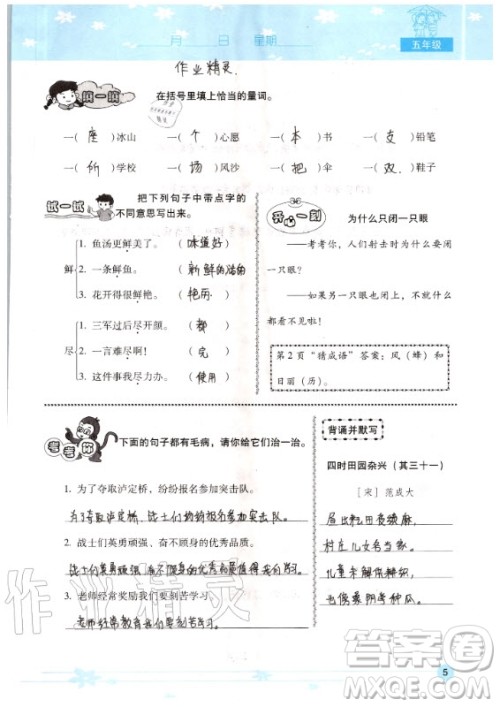 月 日 星期
五年级
作业精灵
填一填 在括号里填上恰当的量词。
一(座)冰山 一(个)心愿 一(本)书 一(支)铅笔
一(所)学校 一(场)风沙 一(把)伞 一(双)鞋子
试一试 把下列句子中带点字的
不同意思写出来。
鲜
1. 鱼汤更鲜美了。(味道好)
2. 一条鲜鱼。(新鲜的活的)
3. 花开得很鲜艳。(艳丽)
尽
1. 三军过后尽开颜。(都)
2. 一言难尽啊!(完)
3. 这件事我尽力办。(使用)
开心一刻
为什么只闭一只眼
——考考你,人们射击时为什么要闭
一只眼?
——如果另一只眼也闭上,那就什么
都看不见啦!
第2页“猜成语”答案:风(蜂)和
日丽(历)。
考考你 下面的句子都有毛病,请你给它们治一治。
1. 为了夺取泸定桥,纷纷报名参加突击队。
为了夺取泸定桥,战士们纷纷报名参加突击队。
2. 战士们英勇顽强、奋不顾身的优秀品质。
战士们英勇顽强、奋不顾身的优秀品质
3. 老师经常奖励我们要刻苦学习。
老师经常教育我们要刻苦学习。
背诵并默写
四时田园杂兴(其三十一)
[宋] 范成大
昼出耘田夜绩麻,
村庄儿女各当家。
儿童未解供耕织,
也傍桑阴学种瓜。
作业精灵
答案圈
MXQE.COM
5